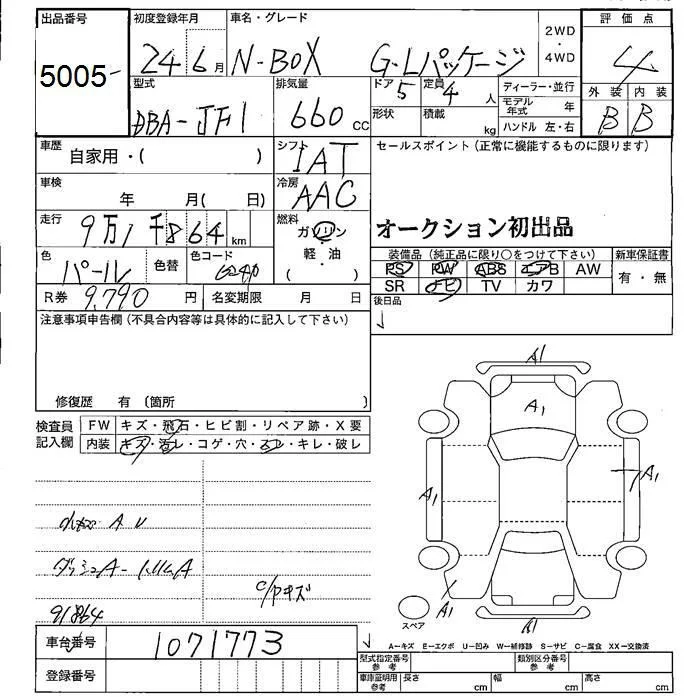 出品番号
5005
初度登録年月
24 6月
車名・グレード
N-BOX G・Lパッケージ
2WD
・
4WD
評価点
4
外装 内装
B B
型式
DBA-JF1
排気量
660 cc
ドア 5
定員 4 人
形状
積載 kg
ディーラー・並行
モデル年式 年
ハンドル 左・右
車歴
自家用・( )
シフト
IAT
セールスポイント(正常に機能するものに限ります)
オークション初出品
車検
年 月( 日)
冷房
AAC
走行
9万1千864 km
燃料
ガソリン
軽・油
( )
色
パール
色替
色コード
R券 9,790 円
名変期限 月 日
装備品(純正品に限り○をつけて下さい)
PS PW ABS エアB AW
SR ナビ TV カワ
新車保証書
有・無
後日品
注意事項申告欄(不具合内容等は具体的に記入して下さい)
修復歴 有(箇所
検査員記入欄
FW キズ・飛石・ヒビ割・リペア跡・X要
内装 キズ・汚レ・コゲ・穴・スレ・キレ・破レ
A U
ダッシュA
91864
A1
A1
A1
A1
A1
スペア
A－キズ E－エクボ U－凹み W－補修跡 S－サビ C－腐食 XX－交換済
車台番号
1071773
登録番号
型式指定番号 参考
類別区分番号 参考
車庫証明用 参考
長さ cm
幅 cm
高さ cm